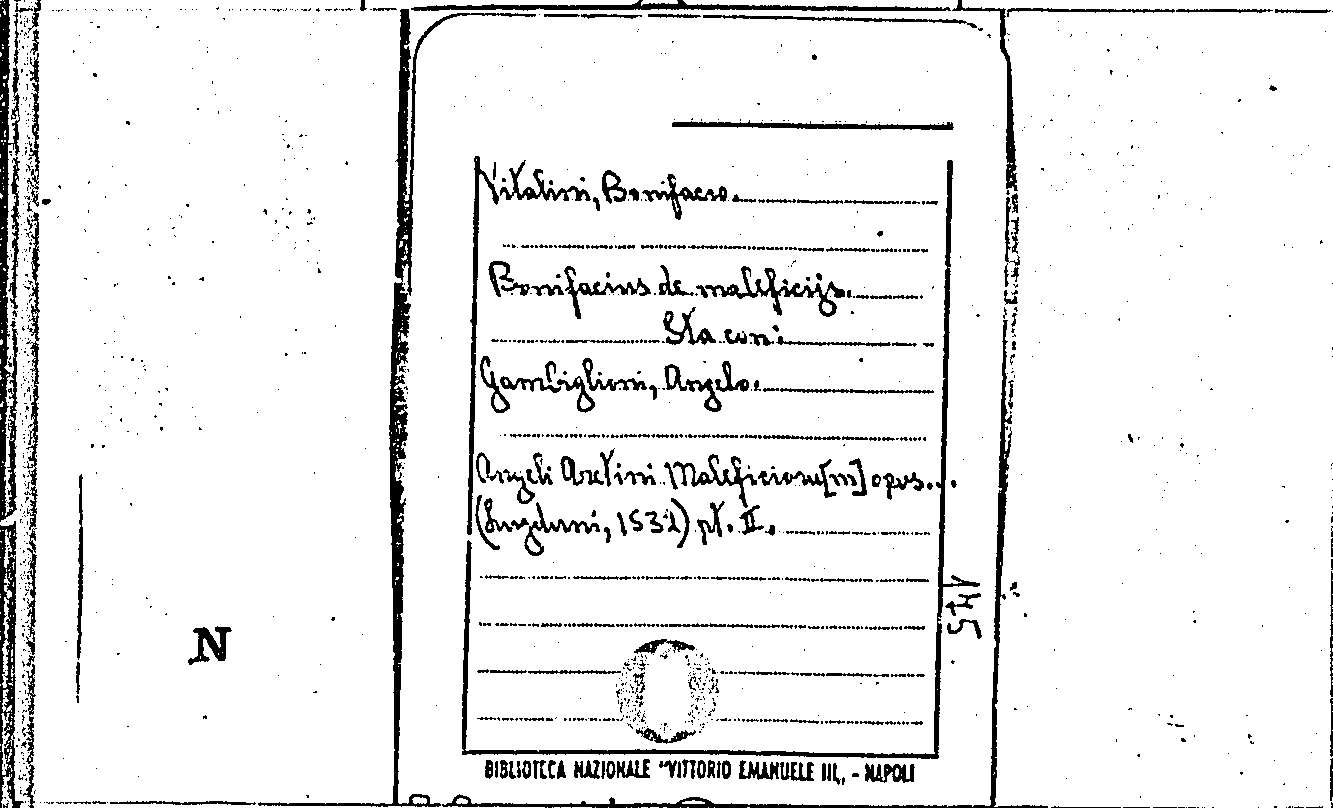 Vitalini, Bonifacio.
Bonifacius de maleficijs.
Sta con:
Gambiglioni, Angelo.
Angeli Aretini Maleficioru[m] opus...
(Lugduni, 1532) pt. II.
N
BIBLIOTECA NAZIONALE "VITTORIO EMANUELE III„ - NAPOLI